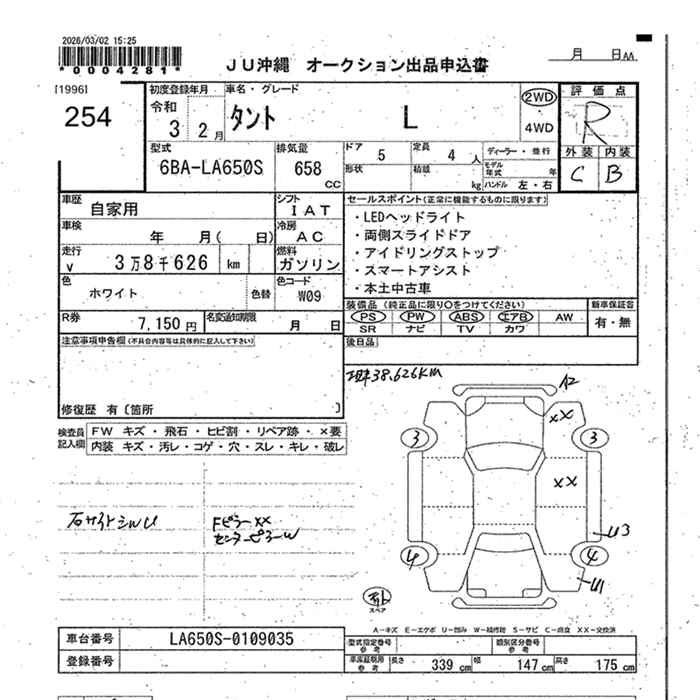 2026/03/02 15:25
*0004281*
JU沖縄 オークション出品申込書
月 日AA
[1996]
254
初度登録年月
令和
3 2月
車名・グレード
タント L
2WD
・
4WD
評価点
R
外装 内装
C B
型式
6BA-LA650S
排気量
658 CC
ドア 5
定員 4 人
形状
積載 kg
ディーラー・並行
モデル年式 年
ハンドル 左・右
車歴
自家用
シフト
IAT
車検
年 月( 日)
冷房
AC
走行
v 3万8千626 km
燃料
ガソリン
色
ホワイト
色替
色コード
W09
R券
7,150円
名変通知期限
月 日
セールスポイント(正常に機能するものに限ります)
・LEDヘッドライト
・両側スライドドア
・アイドリングストップ
・スマートアシスト
・本土中古車
装備品(純正品に限り○をつけてください)
PS PW ABS エアB AW
SR ナビ TV カワ
新車保証書
有・無
後日品
注意事項申告欄(不具合内容等は具体的に記入して下さい)
修復歴 有〔箇所 〕
検査員記入欄
FW キズ・飛石・ヒビ割・リペア跡・×要
内装 キズ・汚レ・コゲ・穴・スレ・キレ・破レ
現車38,626KM
A2
XX
3
3
XX
U3
4
4
U1
スペア
右サイドシルU
FピラーXX
センターピラーW
A-キズ E-エクボ U-凹み W-補修跡 S-サビ C-腐食 XX-交換済
車台番号
LA650S-0109035
登録番号
型式指定番号
参考
類別区分番号
参考
車庫証明用
参考
長さ 339 cm
幅 147 cm
高さ 175 cm